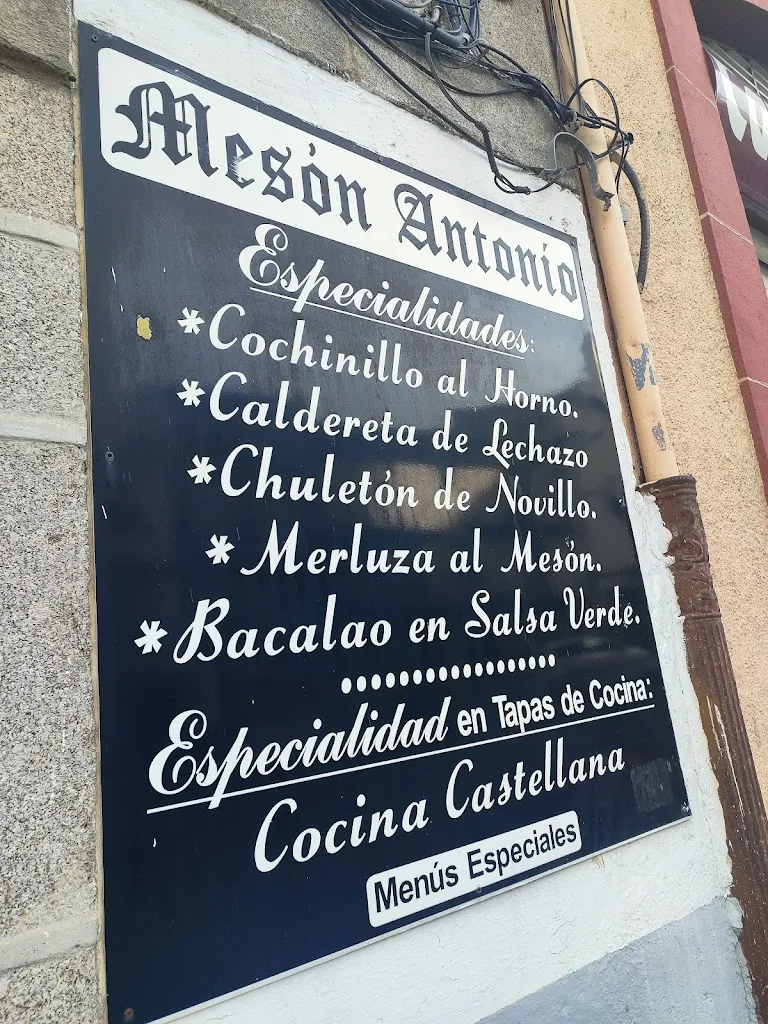 Mesón Antonio
Especialidades:
*Cochinillo al Horno.
*Caldereta de Lechazo
*Chuletón de Novillo.
*Merluza al Mesón.
*Bacalao en Salsa Verde.
Especialidad en Tapas de Cocina:
Cocina Castellana
Menús Especiales